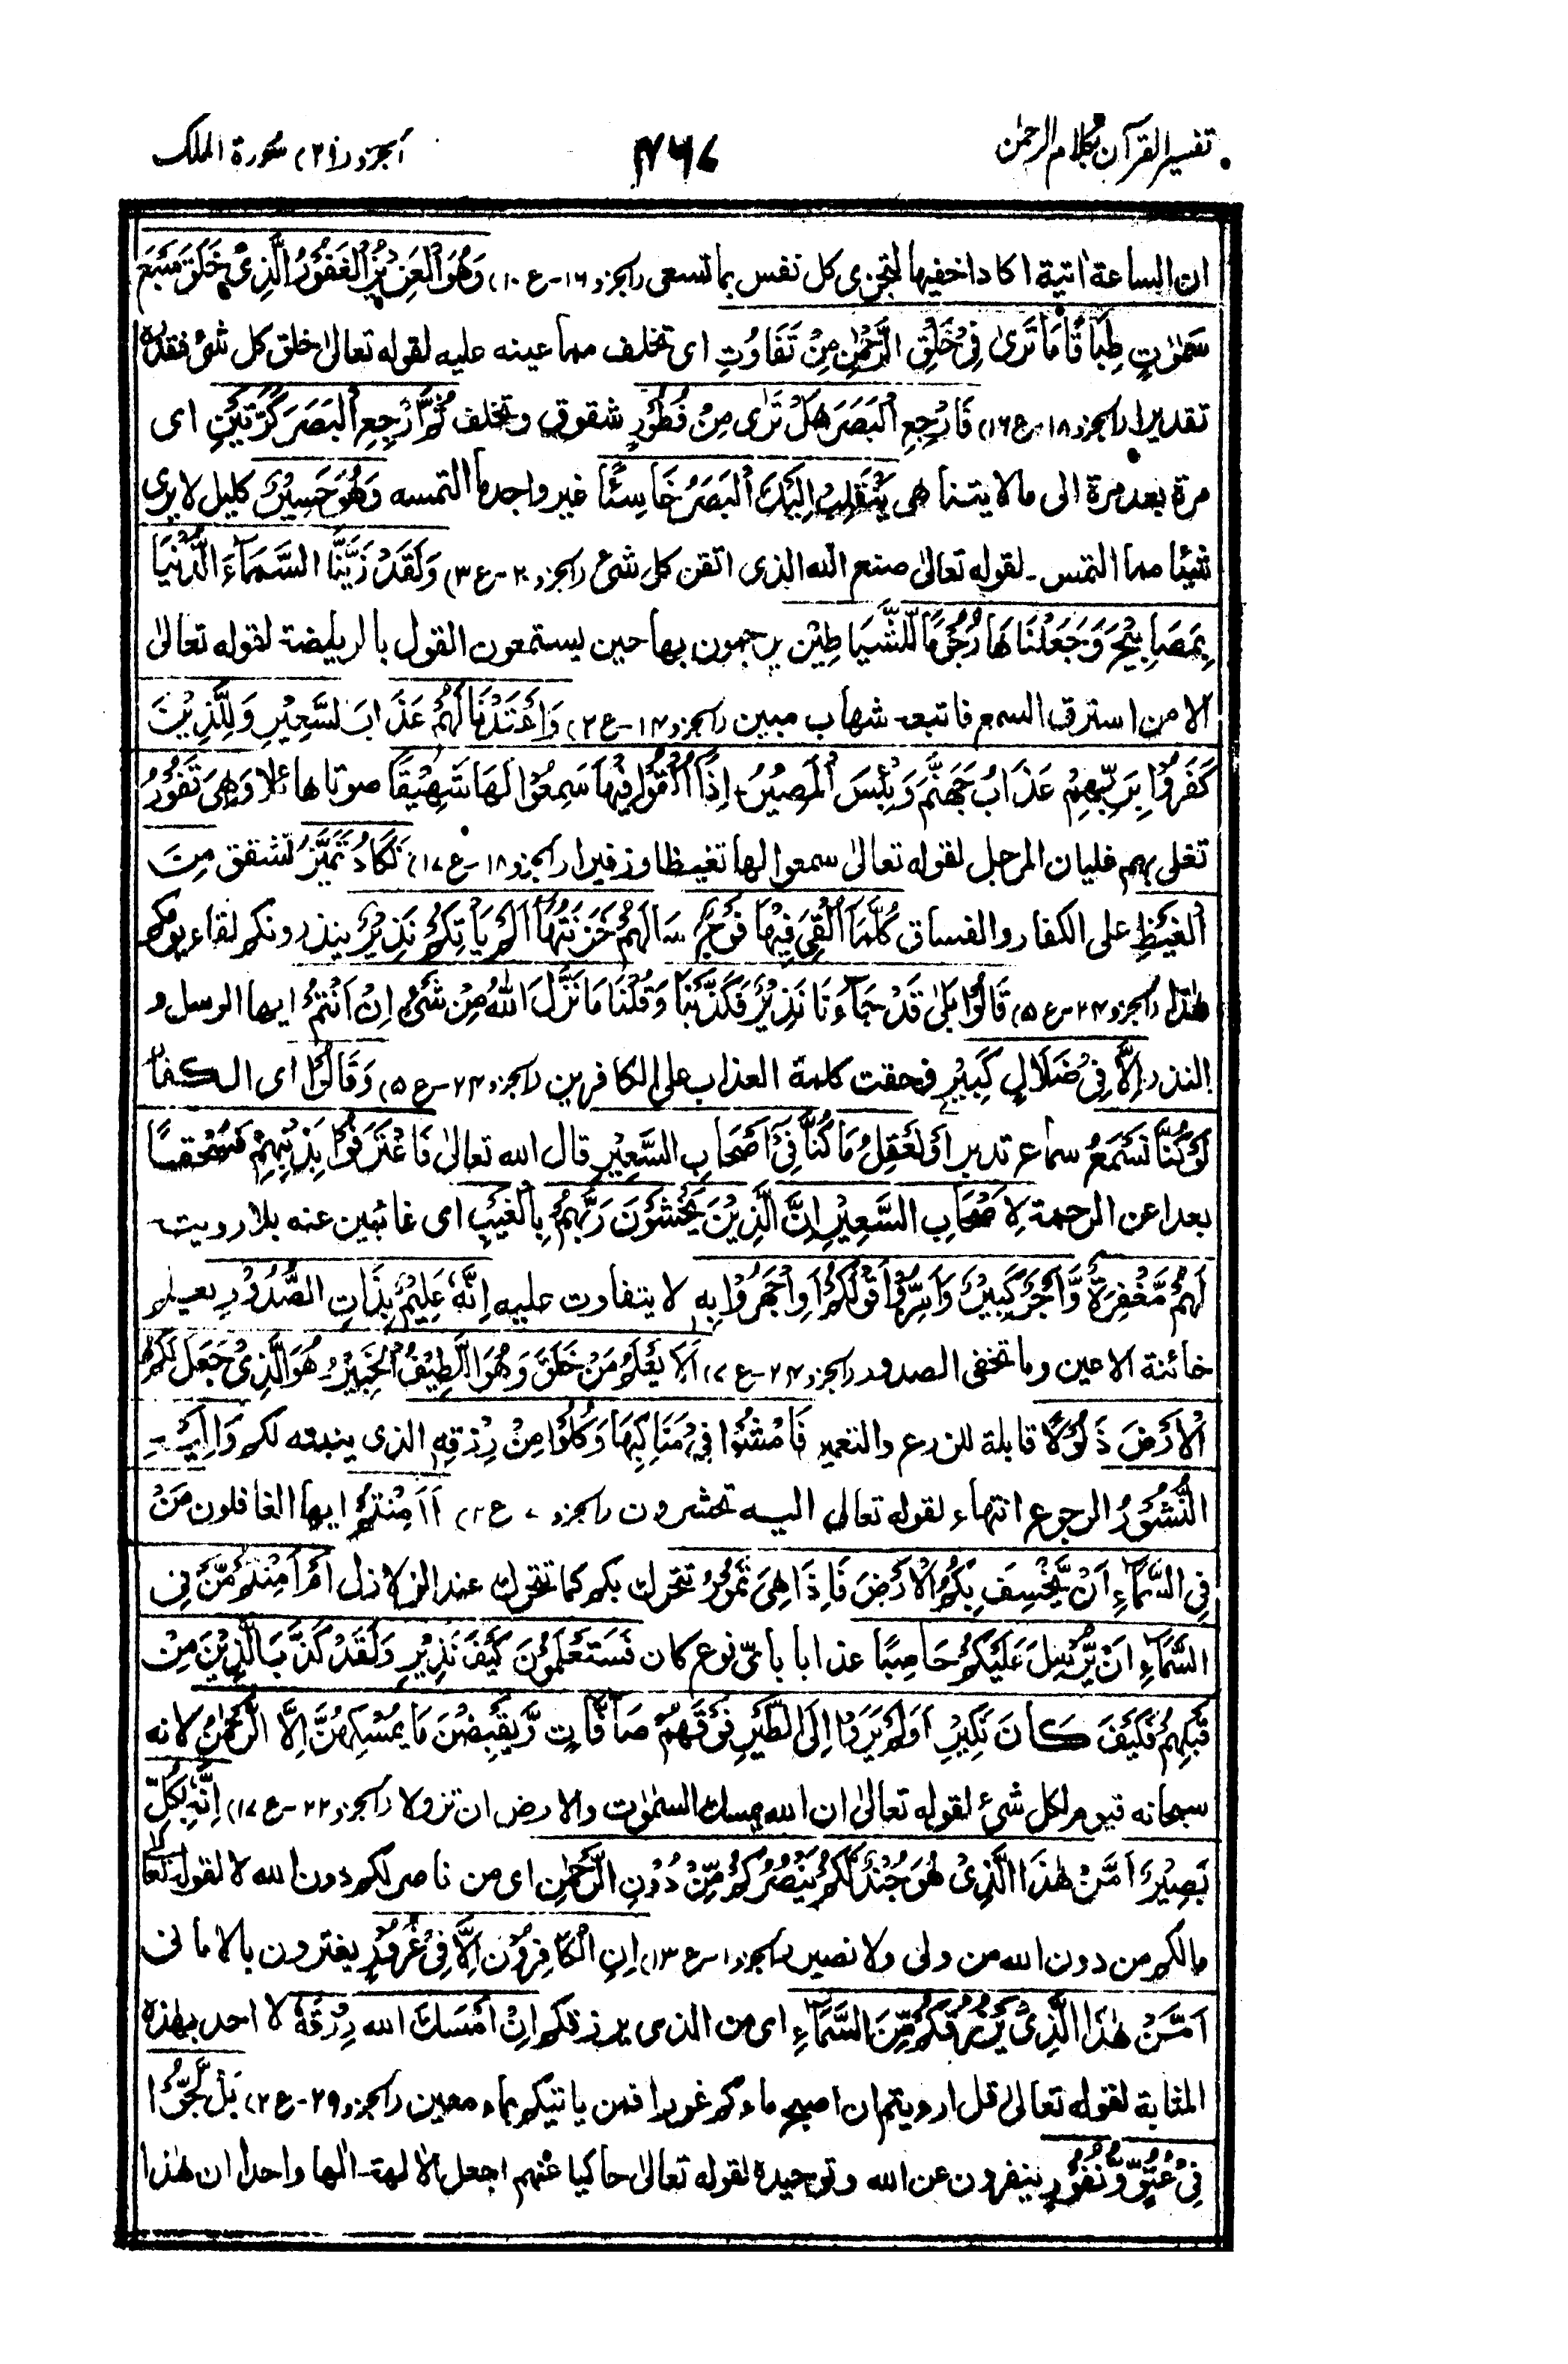 تفسير القرآن بكلام الرحمن ٣٦٧ الجزو (٢٩) سورة الملك
ان الساعة اتية اكاد اخفيها لتجزى كل نفس بما تسعى (الجزو ١٦-ع ١٠) وَهُوَ الْعَزِيْزُ الْغَفُوْرُ الَّذِىْ خَلَقَ سَبْعَ
سَمٰوٰتٍ طِبَاقًا مَا تَرٰى فِىْ خَلْقِ الرَّحْمٰنِ مِنْ تَفَاوُتٍ اى تخلف مما عينه عليه لقوله تعالىٰ خلق كل شئ فقدره
تقديرا (الجزو ١٨-ع ١٦) فَارْجِعِ الْبَصَرَ هَلْ تَرٰى مِنْ فُطُوْرٍ شقوق وتخلف ثُمَّ ارْجِعِ الْبَصَرَ كَرَّتَيْنِ اى
مرة بعد مرة الى ما لا يتناهى يَنْقَلِبْ اِلَيْكَ الْبَصَرُ خَاسِئًا غير واجد ما التمسه وَهُوَ حَسِيْرٌ كليل لا يرى
شيئا مما التمس ـ لقوله تعالىٰ صنع الله الذى اتقن كل شئ (الجزو ٢٠-ع ٣) وَلَقَدْ زَيَّنَّا السَّمَآءَ الدُّنْيَا
بِمَصَابِيْحَ وَجَعَلْنَاهَا رُجُوْمًا لِّلشَّيَاطِيْنِ يرجمون بها حين يستمعون القول بالربيضة لقوله تعالىٰ
الا من استرق السمع فاتبعه شهاب مبين (الجزو ١٤-ع ٢) وَاَعْتَدْنَا لَهُمْ عَذَابَ السَّعِيْرِ وَلِلَّذِيْنَ
كَفَرُوْا بِرَبِّهِمْ عَذَابُ جَهَنَّمَ وَبِئْسَ الْمَصِيْرُ اِذَا اُلْقُوْا فِيْهَا سَمِعُوْا لَهَا شَهِيْقًا صوتا هائلا وَهِىَ تَفُوْرُ
تغلى بهم غليان المرجل لقوله تعالىٰ سمعوا لها تغيظا وزفيرا (الجزو ١٨-ع ١٧) تَكَادُ تَمَيَّزُ تشقق مِنَ
الْغَيْظِ على الكفار والفساق كُلَّمَا اُلْقِىَ فِيْهَا فَوْجٌ سَاَلَهُمْ خَزَنَتُهَا اَلَمْ يَاْتِكُمْ نَذِيْرٌ ينذرونكم لقاء يومكم
هٰذا (الجزو ٢٤-ع ٥) قَالُوْا بَلٰى قَدْ جَآءَنَا نَذِيْرٌ فَكَذَّبْنَا وَقُلْنَا مَا نَزَّلَ اللّٰهُ مِنْ شَىْءٍ اِنْ اَنْتُمْ ايها الرسل و
النذر اِلَّا فِىْ ضَلَالٍ كَبِيْرٍ فحقت كلمة العذاب على الكافرين (الجزو ٢٤-ع ٥) وَقَالُوْا اى الكفار
لَوْ كُنَّا نَسْمَعُ سماع تدبر اَوْ نَعْقِلُ مَا كُنَّا فِىْ اَصْحَابِ السَّعِيْرِ قال الله تعالىٰ فَاعْتَرَفُوْا بِذَنْبِهِمْ فَسُحْقًا
بعدا عن الرحمة لِاَصْحَابِ السَّعِيْرِ اِنَّ الَّذِيْنَ يَخْشَوْنَ رَبَّهُمْ بِالْغَيْبِ اى غائبين عنه بلا رويت
لَهُمْ مَّغْفِرَةٌ وَّاَجْرٌ كَبِيْرٌ وَاَسِرُّوْا قَوْلَكُمْ اَوِ اجْهَرُوْا بِهِ لا يتفاوت عليه اِنَّهُ عَلِيْمٌ بِذَاتِ الصُّدُوْرِ يعلم
خائنة الاعين وما تخفى الصدور (الجزو ٢٤-ع ٧) اَلَا يَعْلَمُ مَنْ خَلَقَ وَهُوَ اللَّطِيْفُ الْخَبِيْرُ هُوَ الَّذِىْ جَعَلَ لَكُمُ
الْاَرْضَ ذَلُوْلًا قابلة للزرع والتعمير فَامْشُوْا فِىْ مَنَاكِبِهَا وَكُلُوْا مِنْ رِزْقِهِ الذى ينبته لكم وَاِلَيْهِ
النُّشُوْرُ الرجوع انتهاء لقوله تعالى اليه تحشرون (الجزو ٧ ع ٢) ءَاَمِنْتُمْ ايها الغافلون مَنْ
فِى السَّمَآءِ اَنْ يَّخْسِفَ بِكُمُ الْاَرْضَ فَاِذَا هِىَ تَمُوْرُ تتحرك بكم كما تتحرك عند الزلازل اَمْ اَمِنْتُمْ مَّنْ فِى
السَّمَآءِ اَنْ يُّرْسِلَ عَلَيْكُمْ حَاصِبًا عذابا باىّ نوع كان فَسَتَعْلَمُوْنَ كَيْفَ نَذِيْرِ وَلَقَدْ كَذَّبَ الَّذِيْنَ مِنْ
قَبْلِهِمْ فَكَيْفَ كَانَ نَكِيْرِ اَوَلَمْ يَرَوْا اِلَى الطَّيْرِ فَوْقَهُمْ صَآفَّاتٍ وَّيَقْبِضْنَ مَا يُمْسِكُهُنَّ اِلَّا الرَّحْمٰنُ لانه
سبحانه قيوم لكل شئ لقوله تعالىٰ ان الله يمسك السمٰوٰت والارض ان تزولا (الجزو ٢٢-ع ١٧) اِنَّهُ بِكُلِّ شَىْءٍ
بَصِيْرٌ اَمَّنْ هٰذَا الَّذِىْ هُوَ جُنْدٌ لَّكُمْ يَنْصُرُكُمْ مِّنْ دُوْنِ الرَّحْمٰنِ اى من ناصر لكم دون الله لا لقوله تعالىٰ
مالكم من دون الله من ولى ولا نصير (الجزو ١-ع ١٣) اِنِ الْكَافِرُوْنَ اِلَّا فِىْ غُرُوْرٍ يغترون بالامانى
اَمَّنْ هٰذَا الَّذِىْ يَرْزُقُكُمْ مِّنَ السَّمَآءِ اى من الذى يرزقكم اِنْ اَمْسَكَ الله رِزْقَهُ لا احد بهٰذه
المثابة لقوله تعالى قل ارءيتم ان اصبح ماءكم غورا فمن ياتيكم بماء معين (الجزو ٢٩-ع ٢) بَلْ لَّجُّوْا
فِىْ عُتُوٍّ وَّنُفُوْرٍ ينفرون عن الله وتوحيده لقوله تعالىٰ حاكيا عنهم اجعل الاٰلهة الٰها واحدا ان هٰذا